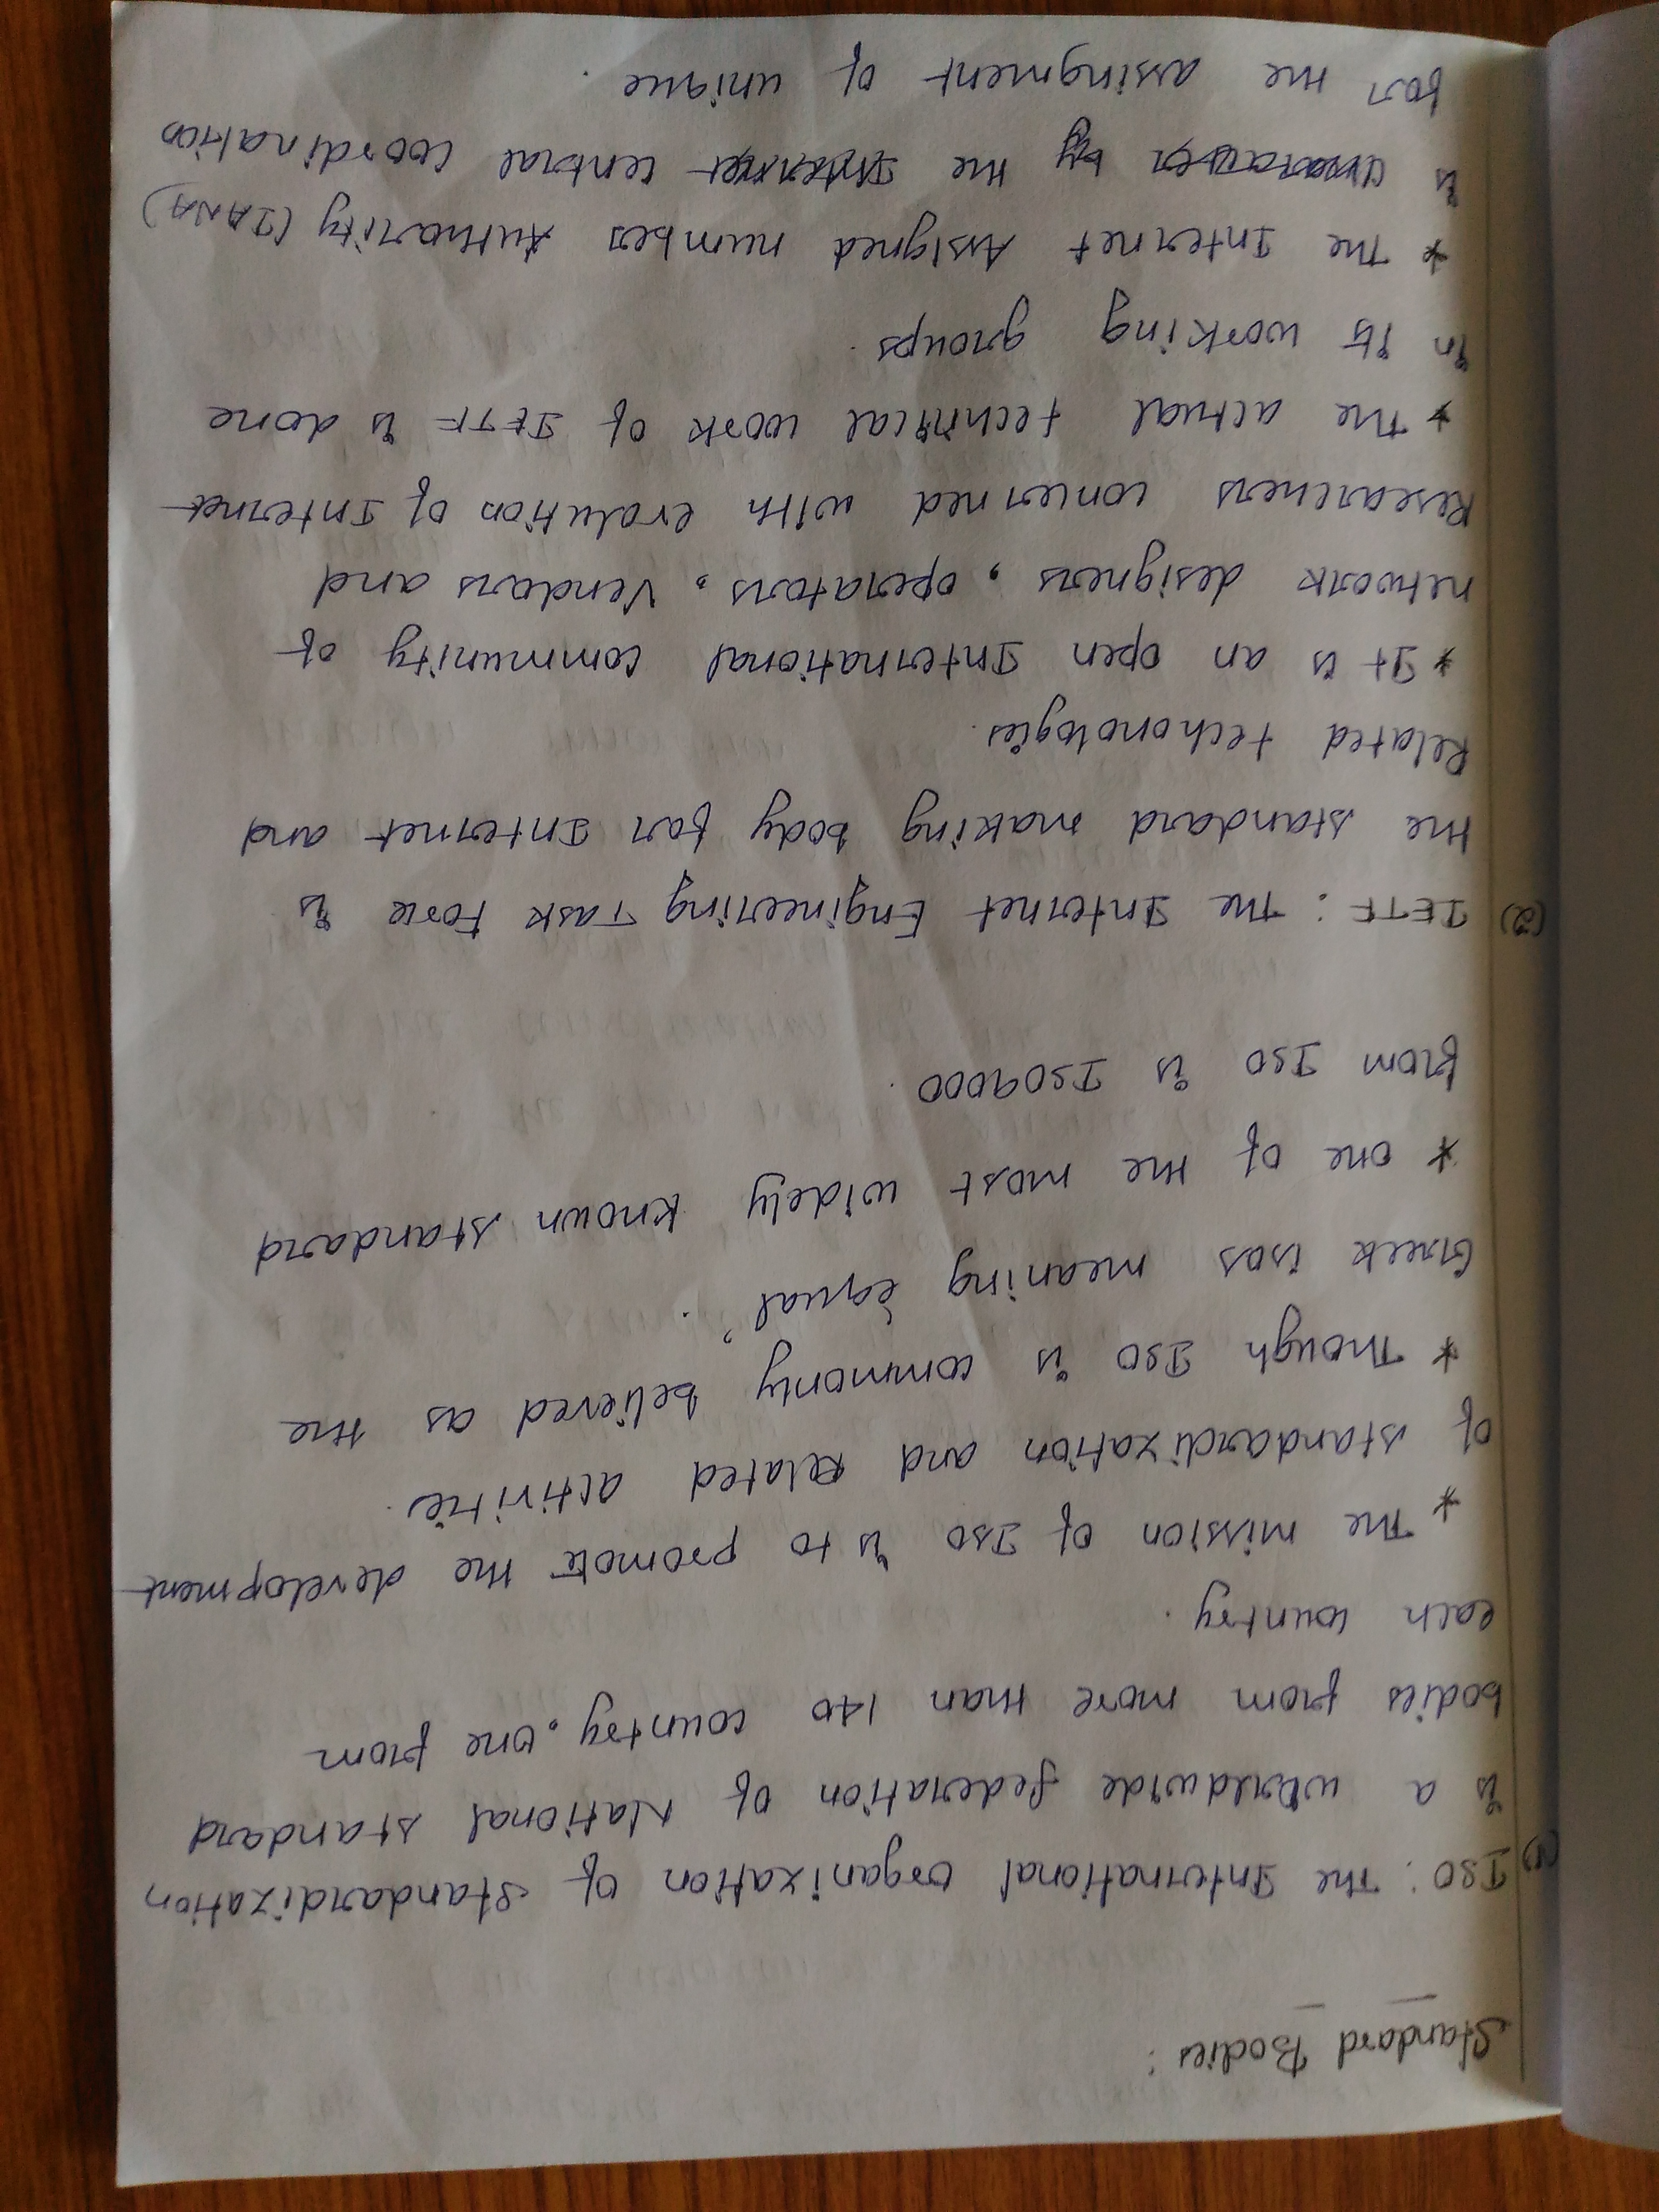 Standard Bodies:
(1) ISO: The International organization of standardization
is a worldwide federation of National standard
bodies from more than 140 country, one from
each country.
* The mission of ISO is to promote the development
of standardization and related activities.
* Though ISO is commonly believed as the
Greek isos meaning 'equal'.
* one of the most widely known standard
from ISO is ISO9000.
(2) IETF: The Internet Engineering Task Force is
the standard making body for Internet and
Related techonologies.
* It is an open International community of
network designers, operators, Vendors and
Researchers concerned with evolution of Internet
* The actual technical work of IETF is done
in its working groups.
* The Internet Assigned number Authority (IANA)
is by the Internet central coordination
for the assingment of unique.